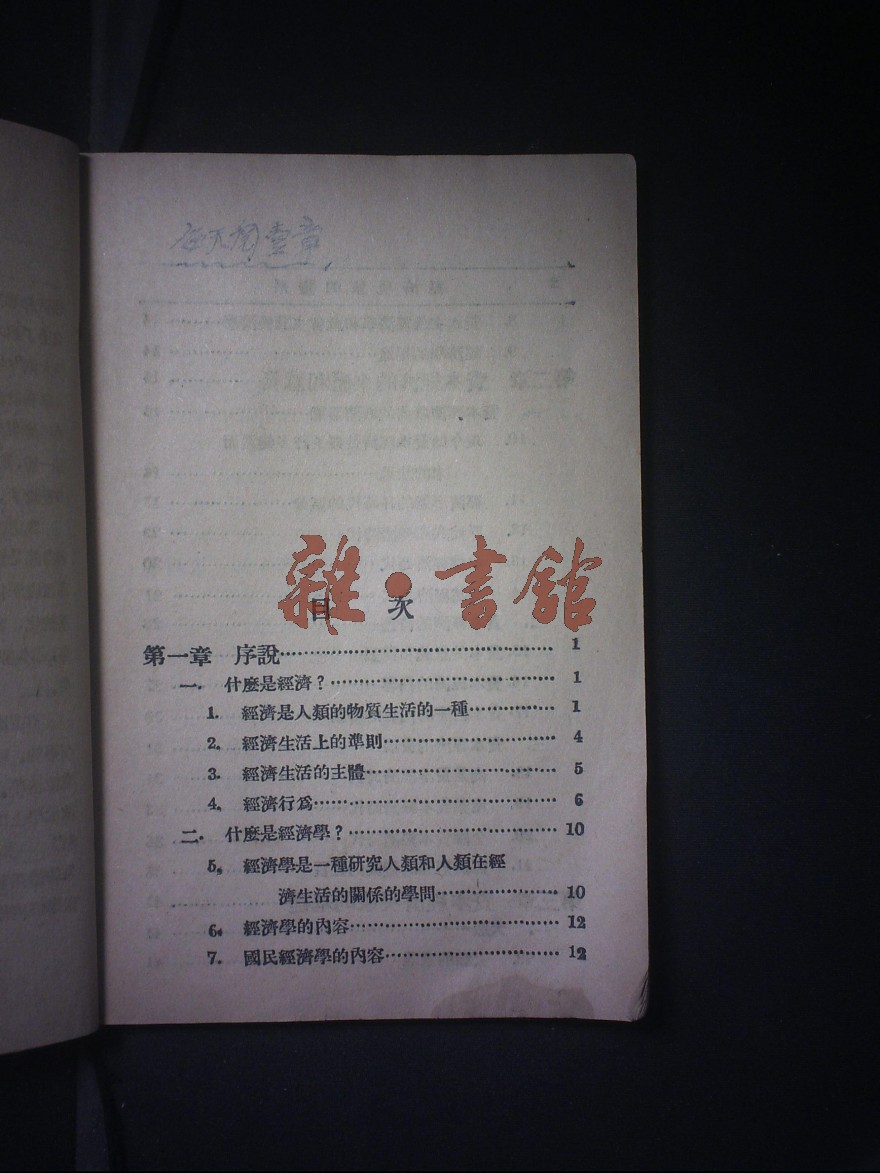 雜·書館
目 次
第一章 序說…………………………………… 1
一. 什麼是經濟？…………………………… 1
1. 經濟是人類的物質生活的一種………… 1
2. 經濟生活上的準則……………………… 4
3. 經濟生活的主體………………………… 5
4. 經濟行爲………………………………… 6
二. 什麼是經濟學？………………………… 10
5. 經濟學是一種研究人類和人類在經
濟生活的關係的學問………………… 10
6. 經濟學的內容…………………………… 12
7. 國民經濟學的內容……………………… 12